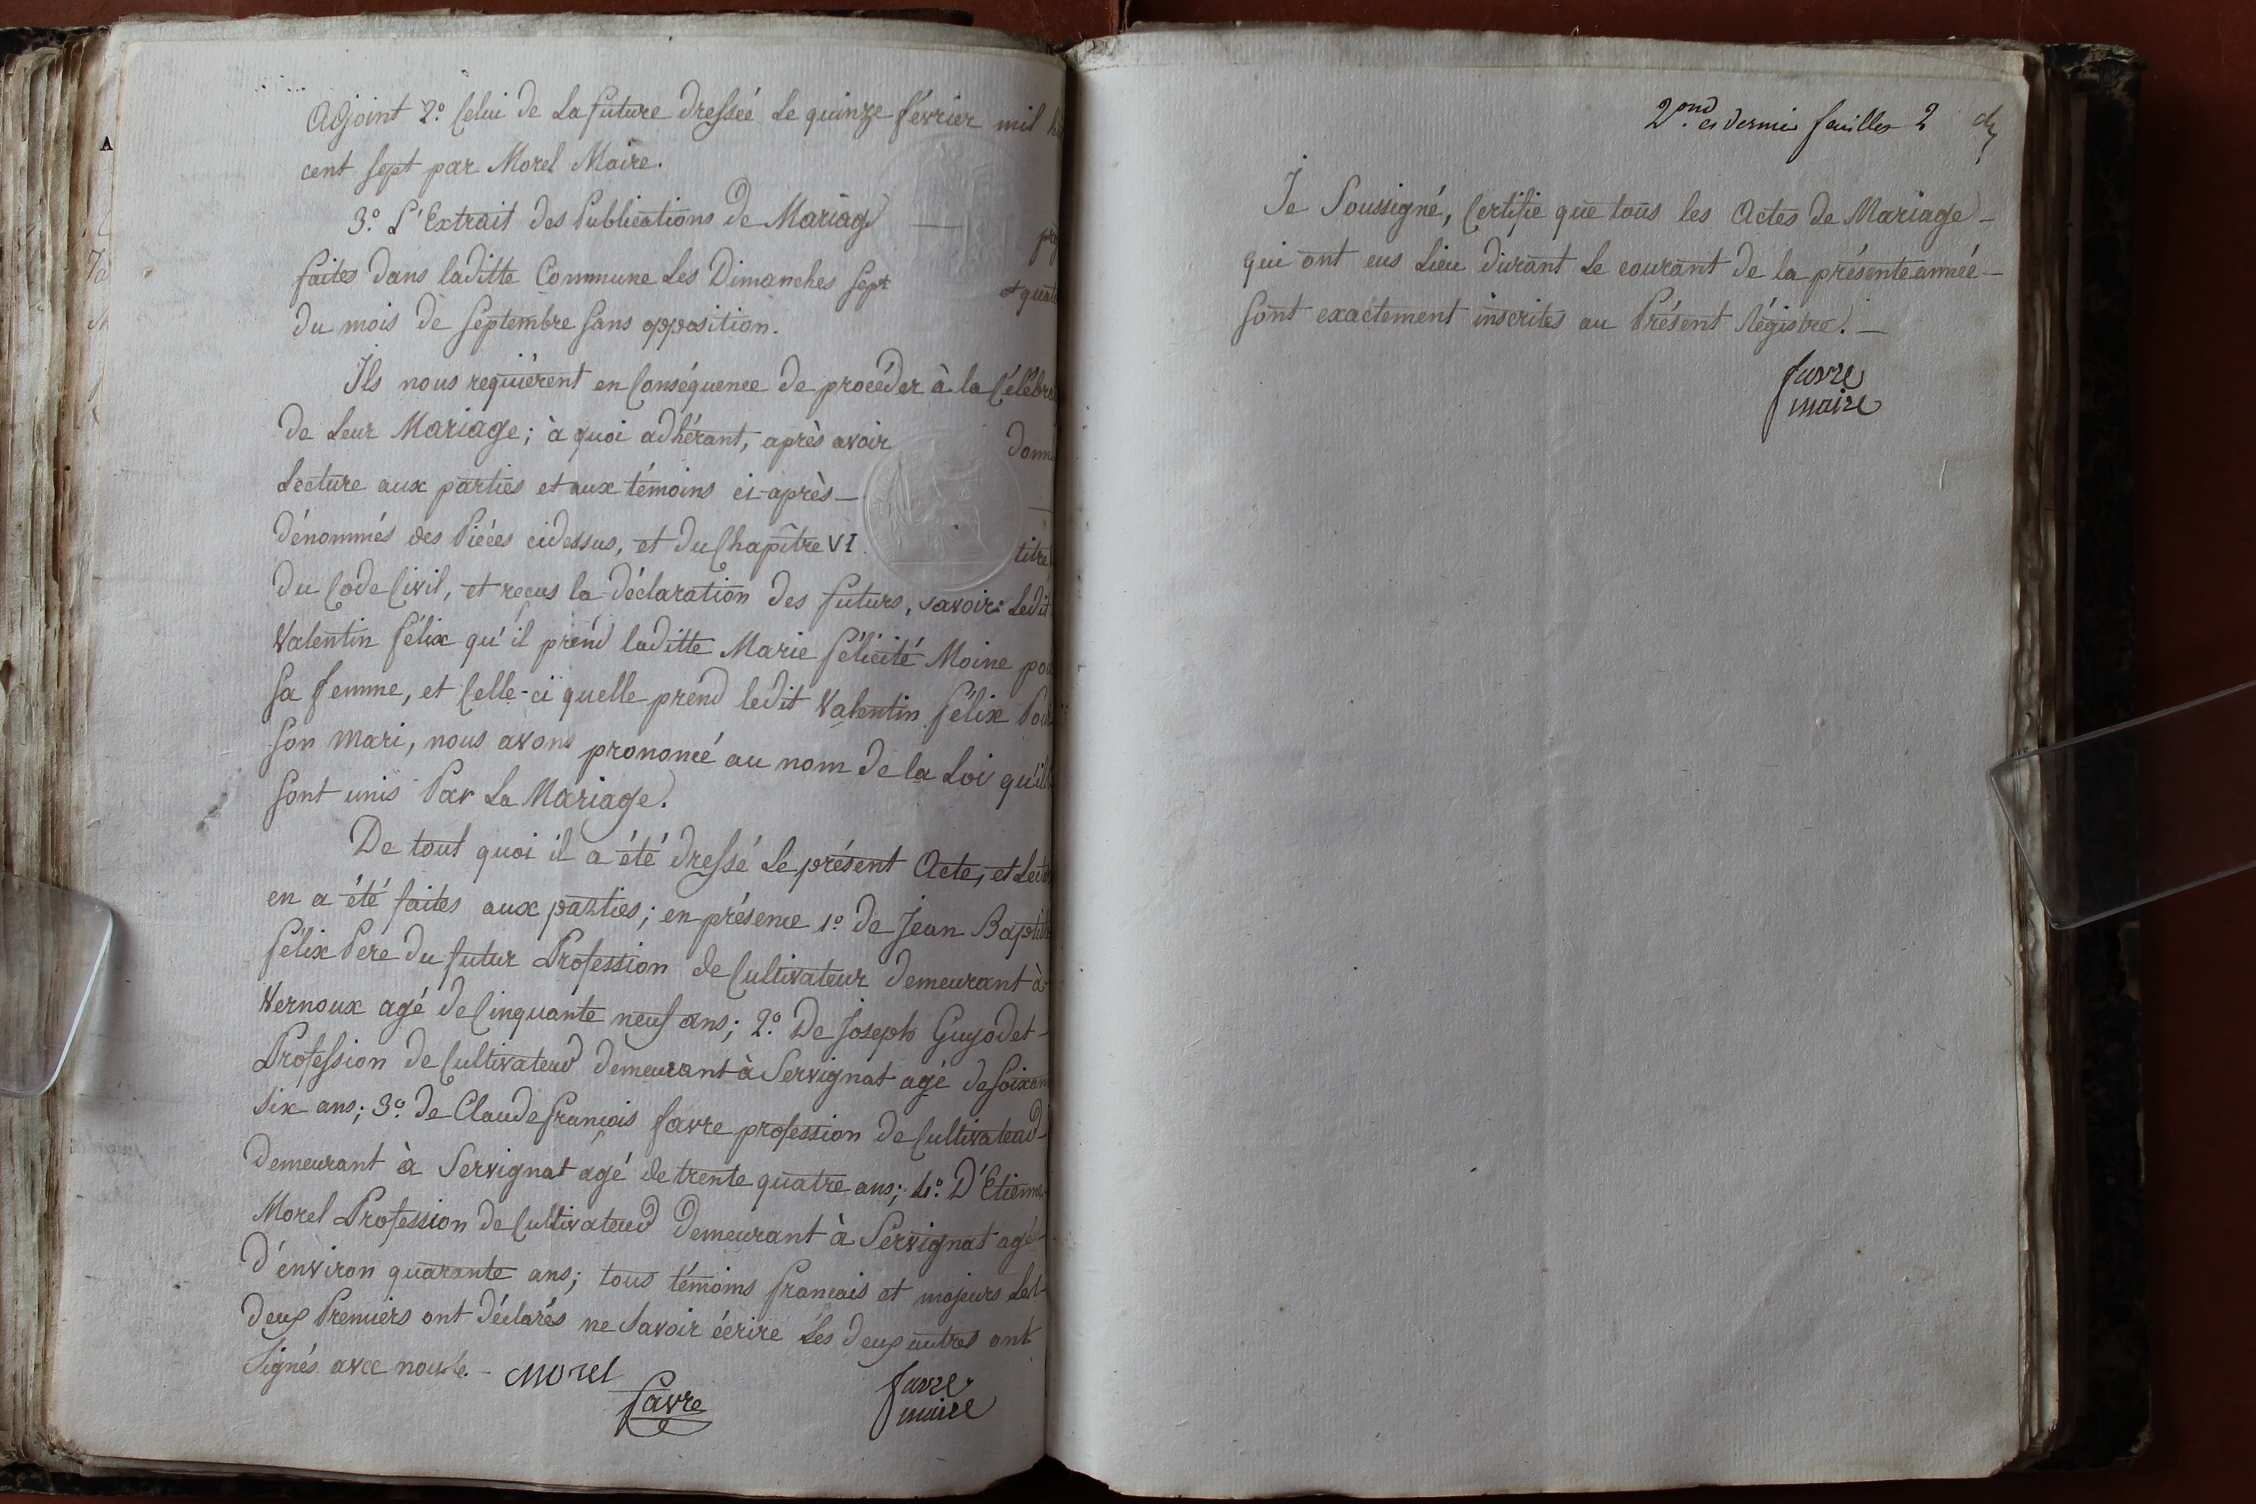 Adjoint 2.° Celui de La future dressée Le quinze février mil
cent sept par Morel Maire.
3.° L'Extrait des Publications de Mariage —
faites dans laditte Commune Les Dimanches sept et
du mois de septembre sans opposition.
Ils nous requièrent en Conséquence de procéder à la
de Leur Mariage; à quoi adhérant, après avoir
Lecture aux parties et aux témoins ci-après —
dénommés des Pièces cidessus, et du Chapître VI titre
du Code Civil, et reçus la déclaration des futurs, savoir: Ledit
Valentin félix qu'il prend laditte Marie félicité Moine
sa femme, et Celle-ci quelle prend ledit Valentin félix
son mari, nous avons prononcé au nom de la Loi
sont unis Par Le Mariage.
De tout quoi il a été dressé Le présent Acte, et
en a été faites aux parties; en présence 1.° de Jean
félix Pere du futur Profession de Cultivateur demeurant à
Vernoux agé de Cinquante neuf ans; 2.° De Joseph Guyodet —
Profession de Cultivateur demeurant à Servignat agé de
six ans; 3.° de Claude françois favre profession de Cultivateur
demeurant à Servignat agé de trente quatre ans; 4.° D'Etienne
Morel Profession de Cultivateur demeurant à Servignat agé
d'environ quarante ans; tous témoins français et majeurs Les
deux Premiers ont déclarés ne savoir écrire Les deux autres ont
Signés avec nous. - Morel
favre
favre
maire
2.ond et dernier feuillet 2
Je Soussigné, Certifie que tous les Actes de Mariage —
qui ont eus Lieu durant Le courant de la présente année —
sont exactement inscrites au Présent Régistre. —
favre
maire